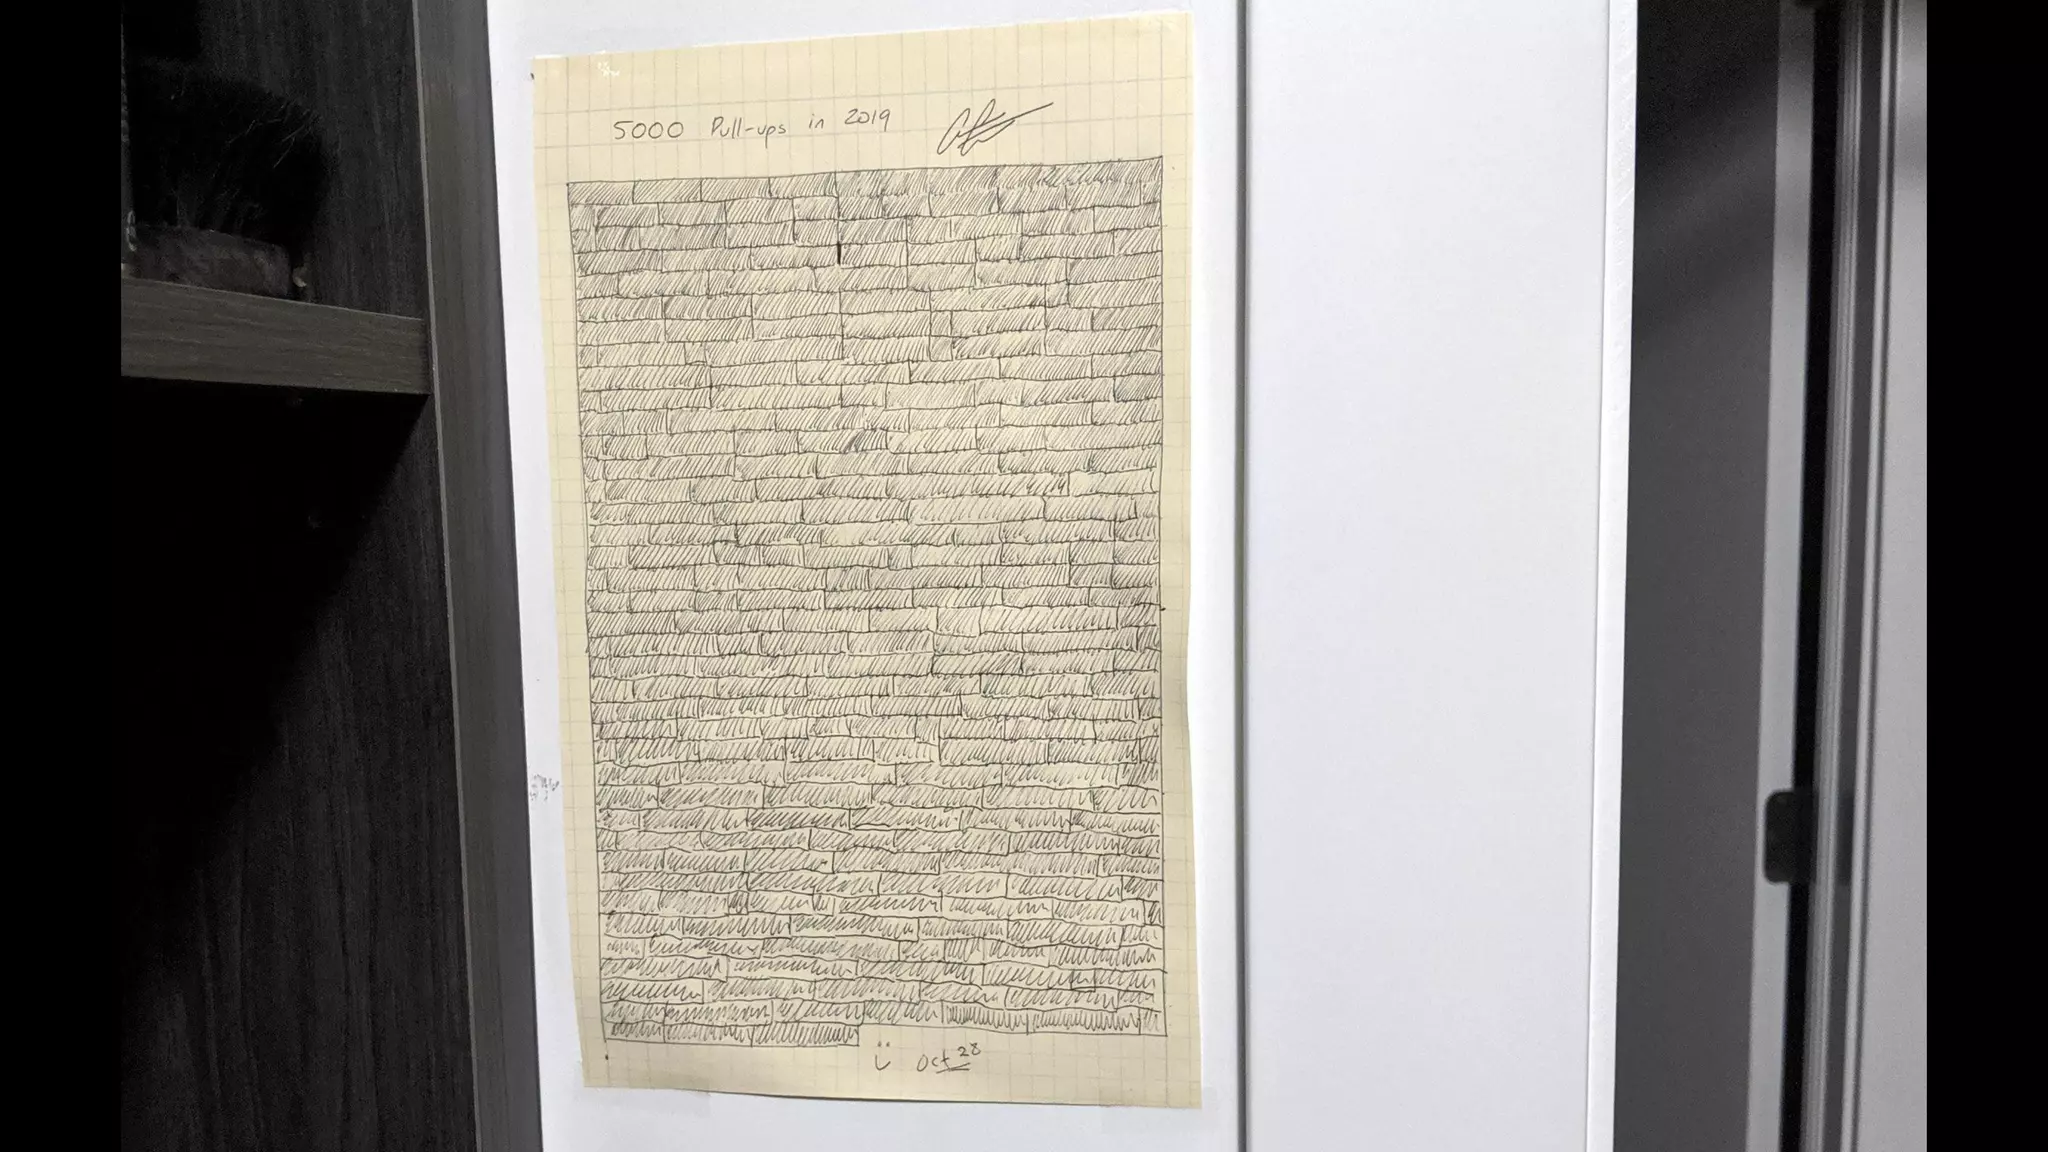 5000 Pull-ups in 2019
Oct 28